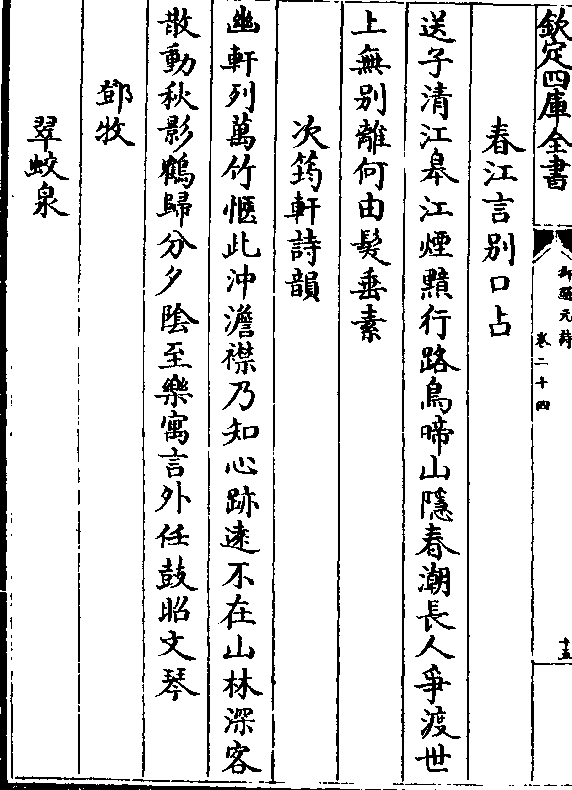 欽定四庫全書
御選元詩
卷二十四
十五
春江言别口占
送子清江皋江煙黯行路鳥啼山隱春潮長人爭渡世
上無别離何由髮垂素
次筠軒詩韻
幽軒列萬竹愜此沖澹襟乃知心跡逺不在山林深客
散動秋影鶴歸分夕陰至樂寓言外任鼓昭文琴
鄧牧
翠蛟泉